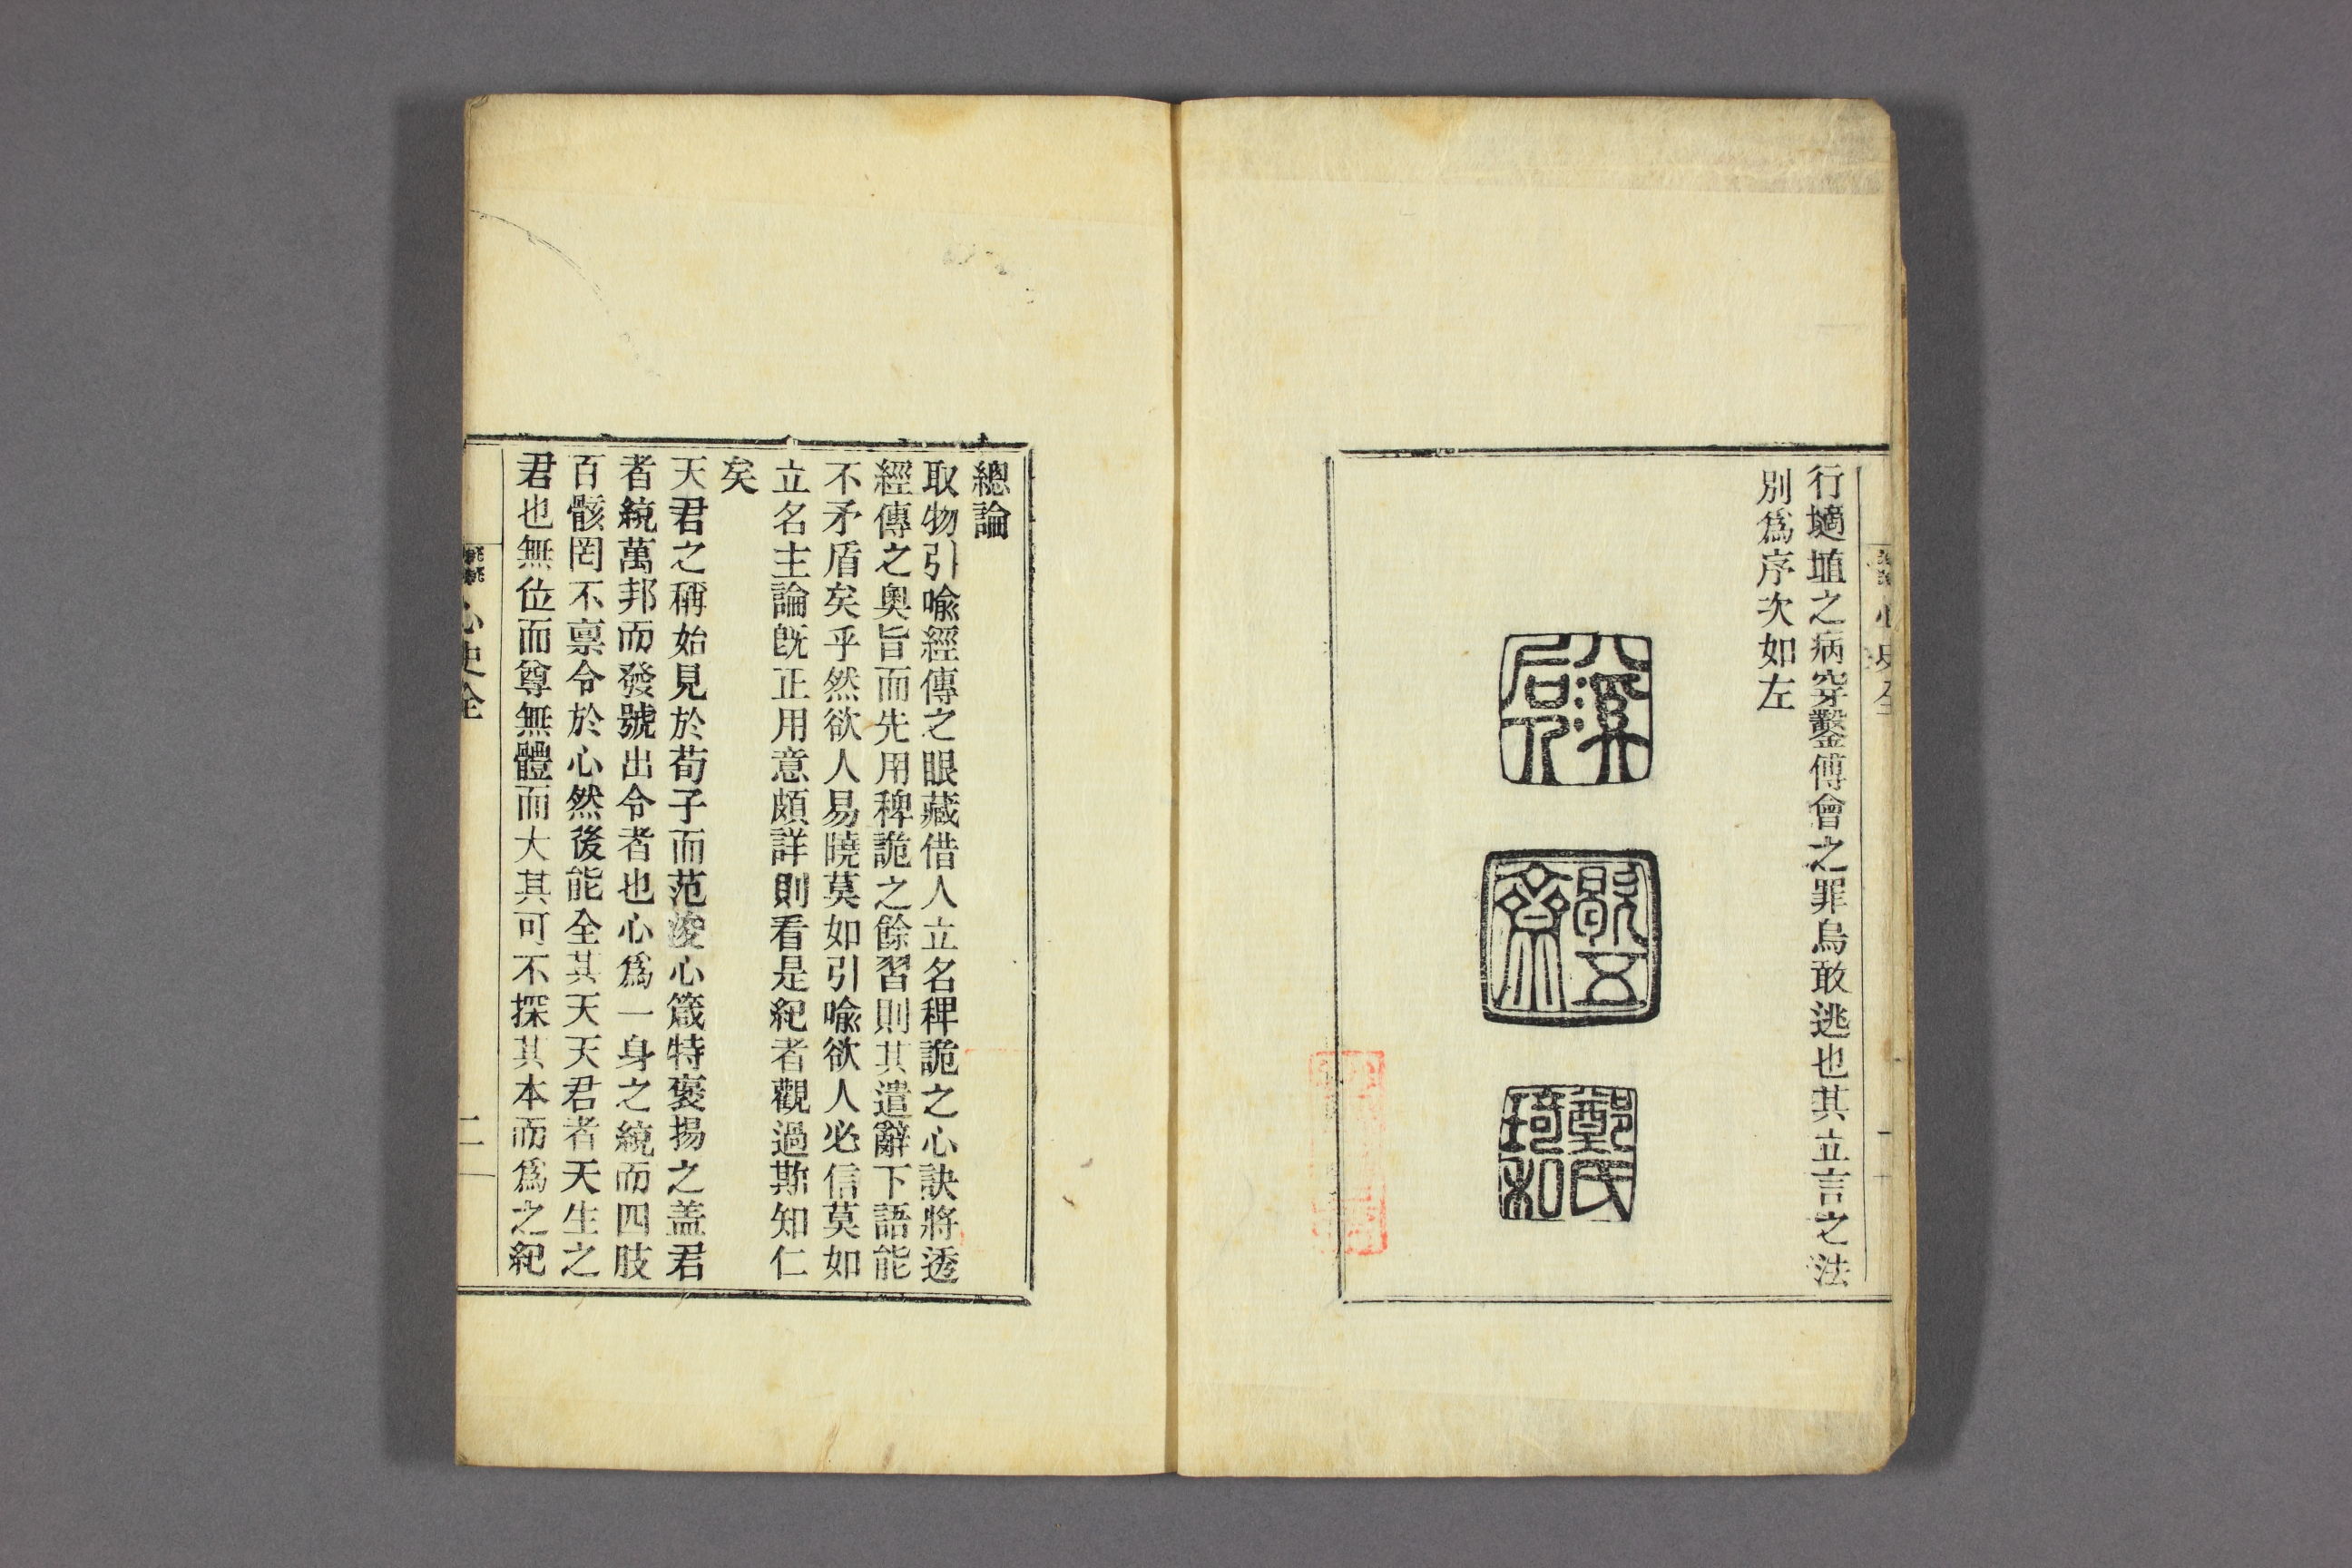 心史全
行擿埴之病穿鑿傅會之罪烏敢逃也其立言之法
別爲序次如左
鄭氏
琦和
總論
取物引喩經傳之眼藏借人立名稗詭之心訣將透
經傳之奧旨而先用稗詭之餘習則其遣辭下語能
不矛盾矣乎然欲人易曉莫如引喩欲人必信莫如
立名主論旣正用意頗詳則看是紀者觀過斯知仁
矣
天君之稱始見於荀子而范浚心箴特褒揚之盖君
者統萬邦而發號出令者也心爲一身之統而四肢
百骸罔不禀令於心然後能全其天天君者天生之
君也無位而尊無體而大其可不探其本而爲之紀
心史全
二